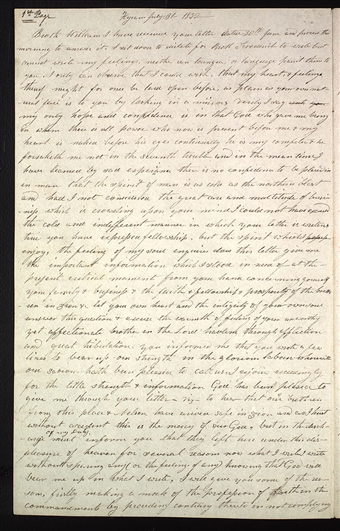 1st Page Hyram July 31st 1832
Broth William I have received your letter dated 30th June and proceed this
morning to answer it I sit down to dictate for Broth Frederick to write but
cannot write my feelings, neither can toungue, or language paint them to
you. I only can observe that I could wish, that my heart, & feelings
thereof might for once be laid open before, as plain as your own natural
face is to you by looking in a mirror, verily I say
my only hope and confidence is in that God who gave me being
in whom there is all power who now is present before me & my
heart is naked before his eyes continually he is my comforter & he
forsaketh me not in the seventh trouble, and in the mean time I
have learned by sad experience there is no confidence to be placed
in man that the spirit of man is as cold as the northern blast
and had I not considered the great care and multitude of business
which is crowding upon your mind I could not have excused
the cold and indifferent manner in which your letter is written
time you have expressed fellowship, but the spirit which I
enjoy, the feeling of my soul enquires does this letter give me
the important information which stood so in need of at the
present critical moment from your hand concerning
your family & business & the faith & prosperity of the brethren
in Zion & let your own heart and the integrity of your own soul
answer this question & excuse the warmth of feeling of your unworthy
yet affectionate brother in the Lord travling through affliction
and great tribulation. you informed me that you
lines to bear up our strength in the glorious labour whereunto
our saviour hath been pleased to call us I rejoice exceedingly
for the little strength & information God has been pleased to
give me through your letter to hear that our brethren
from this place & Nelson have arived safe in Zion
without accident this is the mercy of our God, but in the
I must inform you that they left here under this displeasure
of heaven for several reasons now what I write I write
without sparing any of the feeling of any knowing that God will
bear me up in what I write, I will give you some of the reasons,
firstly, making a mock of the profession of faith in the
commandments by proceding contrary thereto in not complying